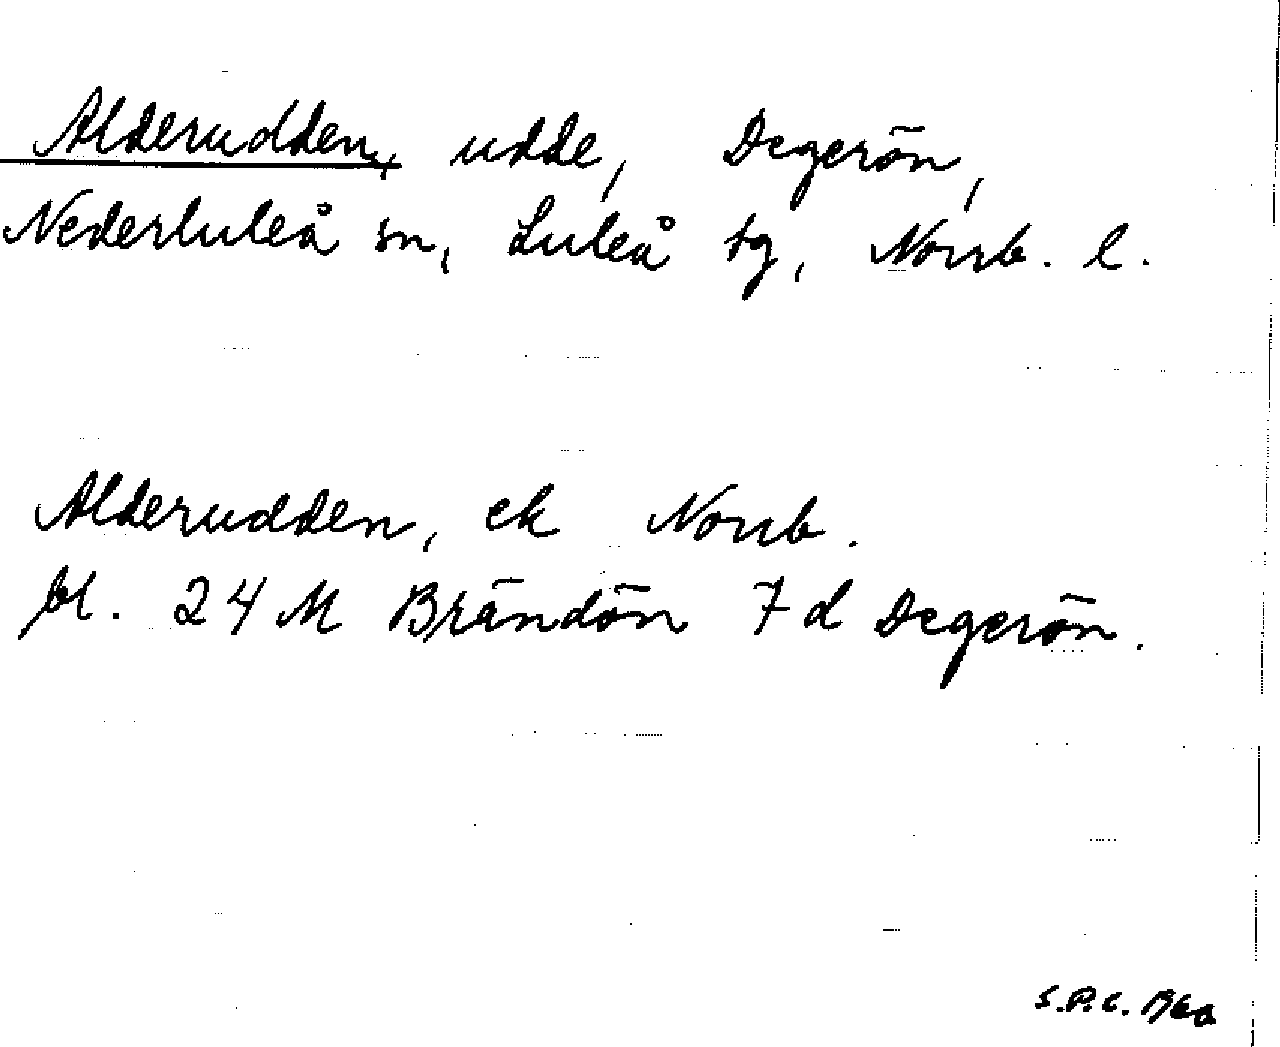 Alderudden, udde, Degerön,
Nederluleå sn, Luleå tg, Norrb. l.
Alderudden, ek Norrb.
bl. 24 M Brändön 7 d Degerön.
S.P.C.